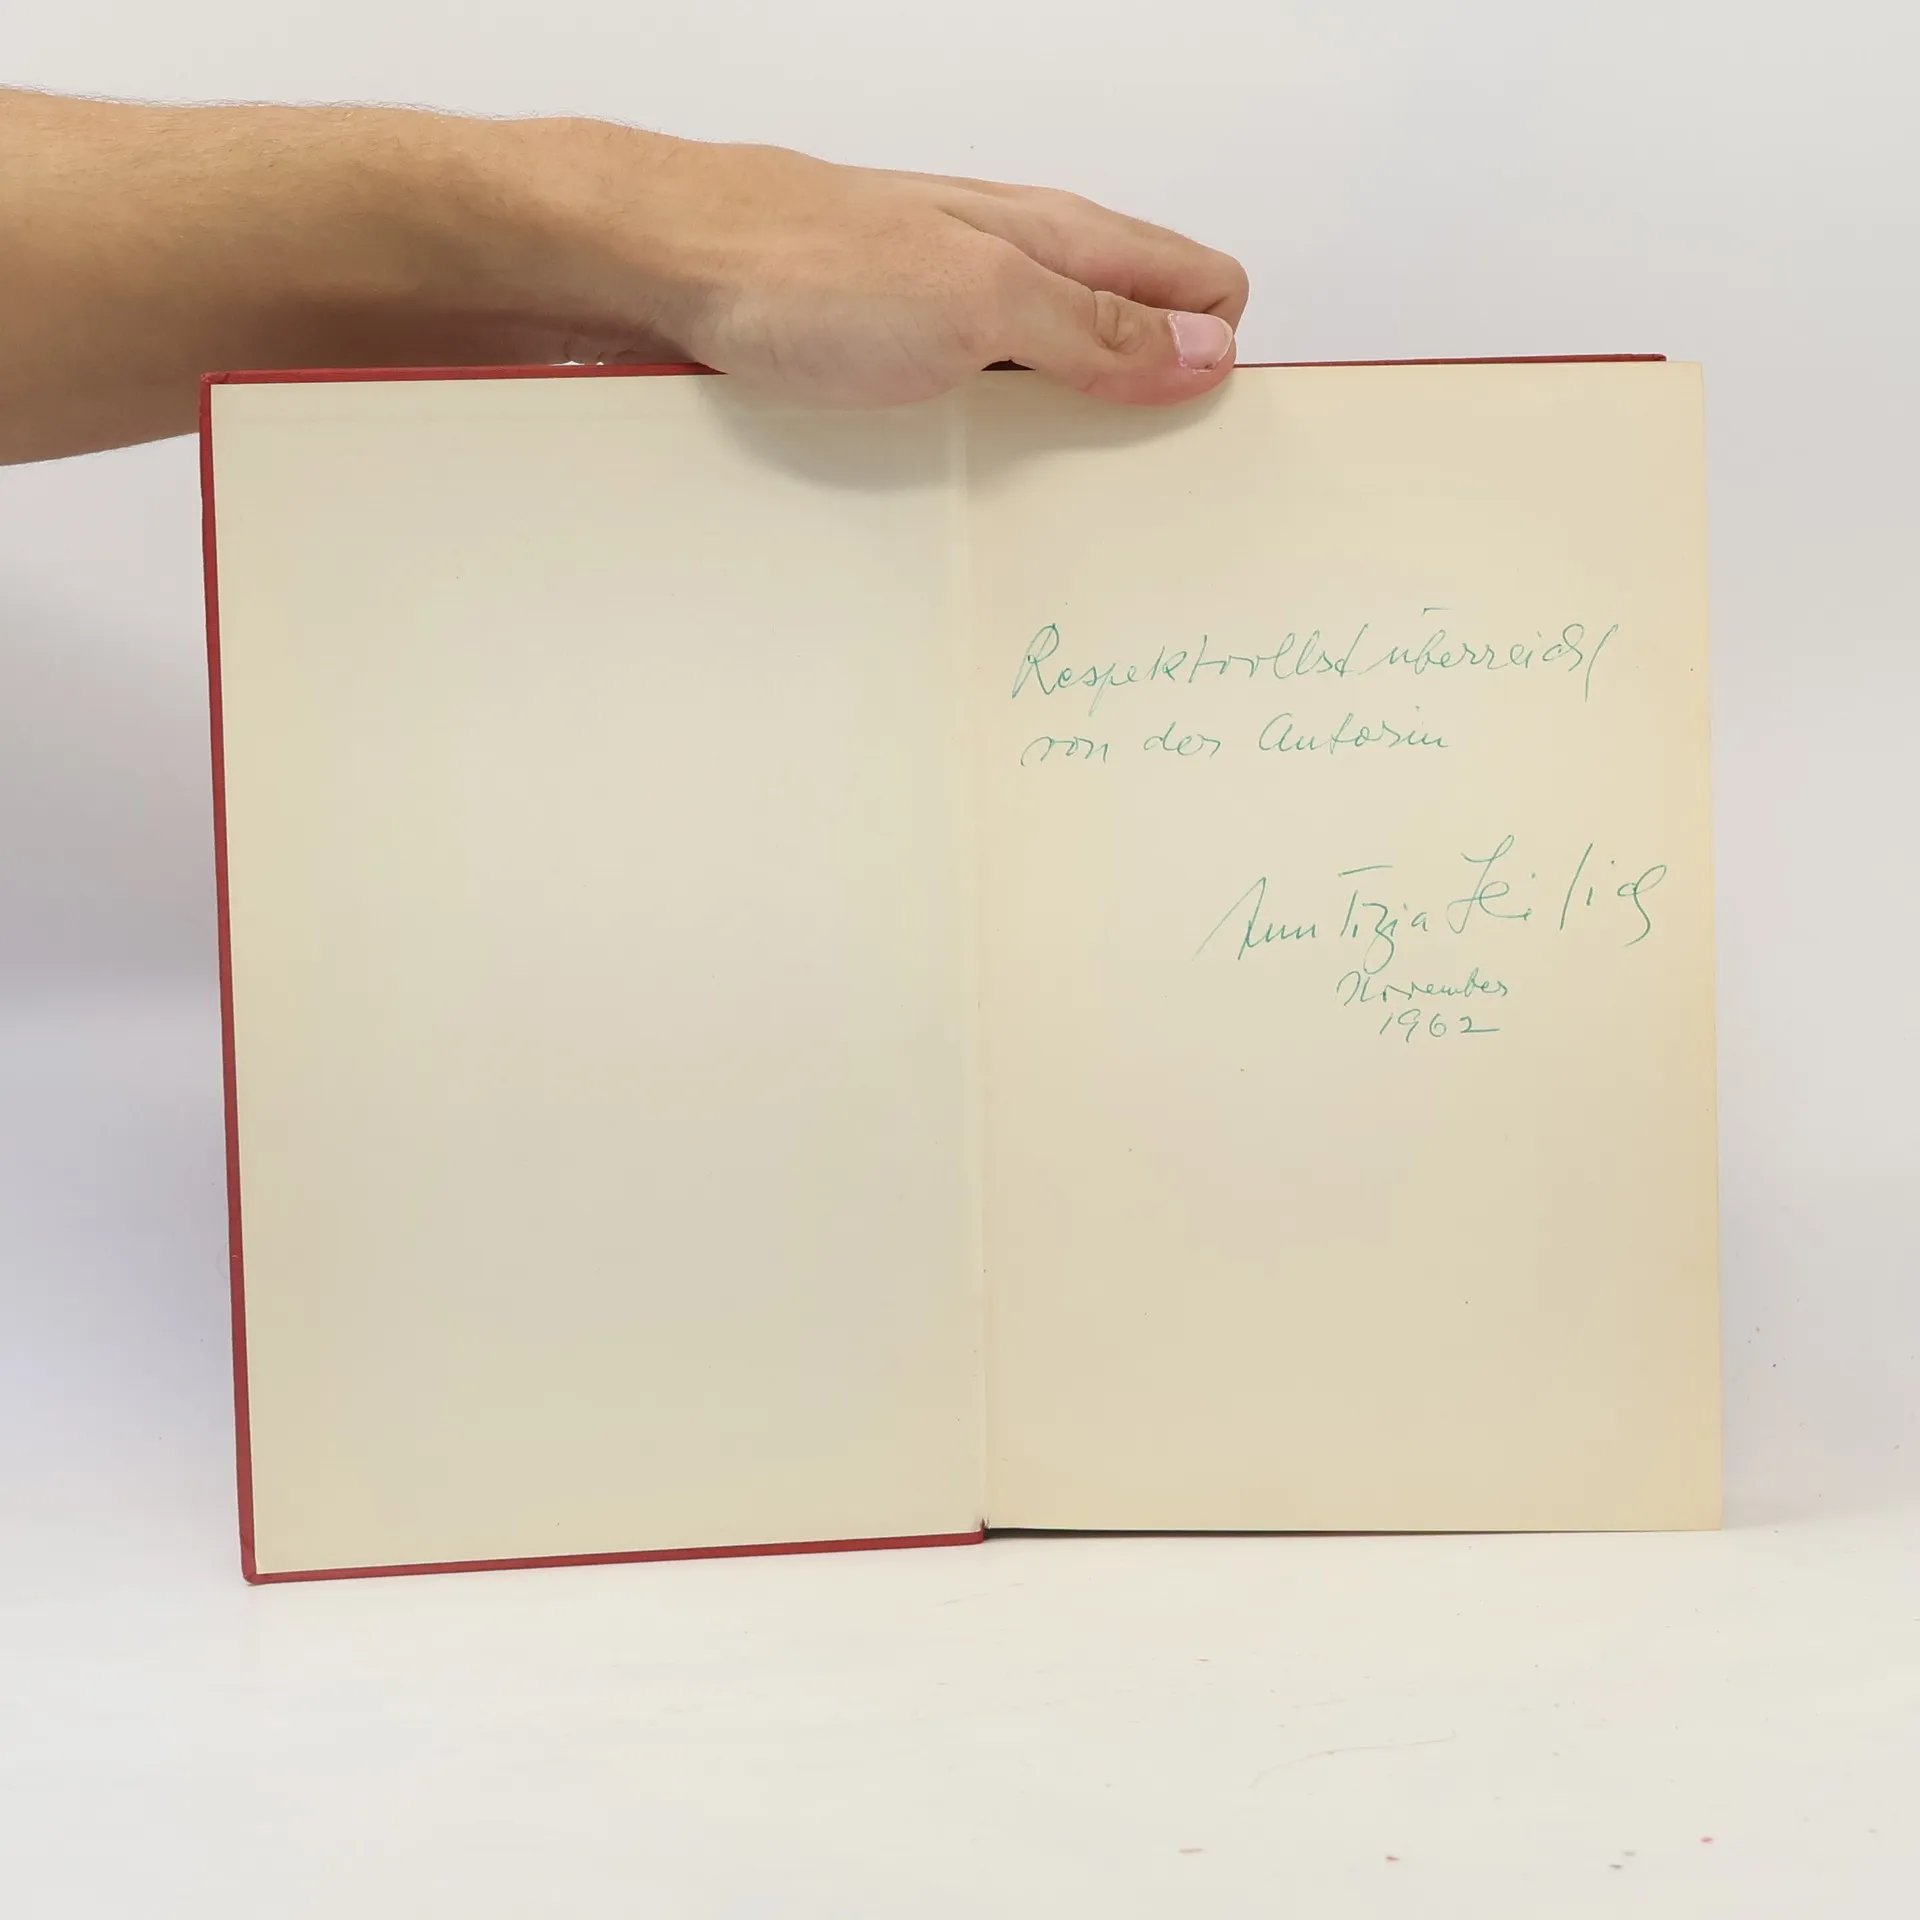 Respektvollst überreicht
von der Autorin
Ann Tizia Leitich
November
1962